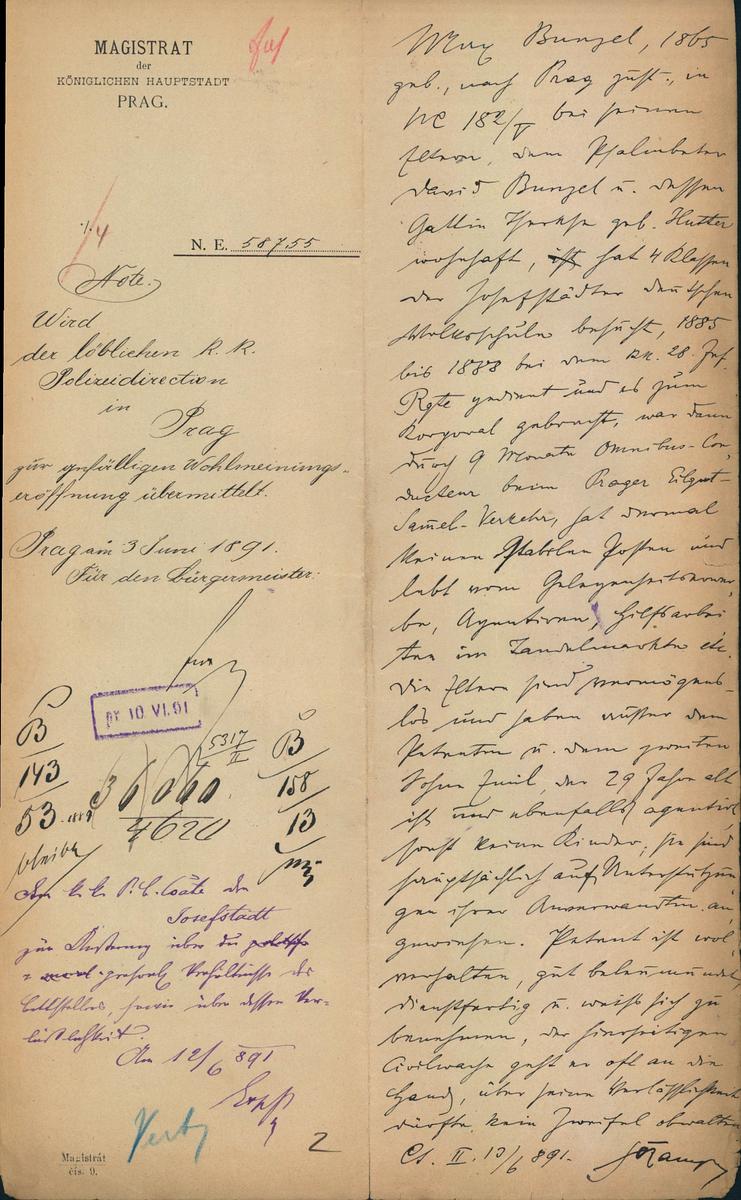 MAGISTRAT
der
KÖNIGLICHEN HAUPTSTADT
PRAG.
N. E. 58755
Note.
Wird
der löblichen k. k.
Polizeidirection
in
Prag
zur gefälligen Wohlmeinungs-
eröffnung übermittelt.
Prag am 3 Juni 1891.
Für den Bürgermeister:
pr 10 VI. 91
5317
II
B
143
53
bleibt
4620
B
158
13
k. k. P. B. Coate der
Josefstadt
zur Äusserung über die
persönl. Verhältnisse des
Bittstellers, sowie über dessen Ver-
lässlichkeit.
Am 12/6 891
2
Magistrát
čís. 9.
Max Bunzel, 1865
geb., nach Prag zust., in
NC 182/V bei seinen
Eltern, dem Psalmbeter
David Bunzel u. dessen
Gattin Therese geb. Hutter
wohnhaft, ist hat 4 Klassen
der Josefstädter deutschen
Volksschule besucht, 1885
bis 1888 bei dem kk. 28. Inf.
Rgte gedient und es zum
Korporal gebracht, war dann
durch 9 Monate Omnibus-Con-
ducteur beim Prager Eilgut-
Sam̄el-Verkehr, hat dermal
keinen stabilen Posten und
lebt vom Gelegenheitserwer-
be, Agentieren, Hilfsarbei
ten im Tandelmarkte etc.
Die Eltern sind vermögens-
los und haben außer dem
Petenten u. dem zweiten
Sohne Emil, der 29 Jahre alt
ist und ebenfalls agentirt,
sonst keine Kinder; sie sind
hauptsächlich auf Unterstützun
gen ihrer Anverwandten an-
gewiesen. Petent ist wol
verhalten, gut beleumundet,
dienstfertig u. weiß sich zu
benehmen, der hierseitigen
Civilwache geht er oft an die
Hand, über seine Verläßlichkeit
dürfte kein Zweifel obwalten
Ct. II. 13/6 891.